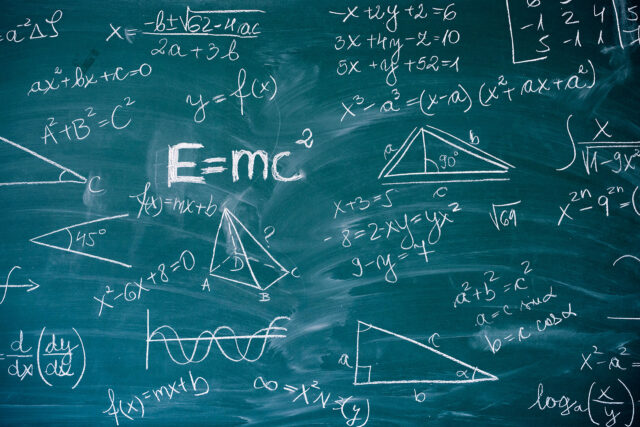 = a²ΔS
x = (-b±√62-4ac)/(2a+3b)
-x+2y+2=6
3x+4y-z=10
5x+y+52=1
-1 2 4
5 -1 1
ax²+bx+c=0
y=f(x)
x³-a³=(x-a)(x²+ax+a²)
A²+B²=C²
E=mc²
a
b
90°
c
∫ x/√1-9x²
C
f(x)=mx+b
?
x+3=5
√69
x²ⁿ-9²ⁿ=(
45°
-8=2-xy=yx²
9-y=7
A
D
B
C
x²-6x+8=0
a²+b²=c²
a=c sinα
b=c cosα
d/dx (dy/dx)
a
c
α
b
x²-a²=
f(x)=mx+b
∞=x²
(y)
logₐ(x/y)